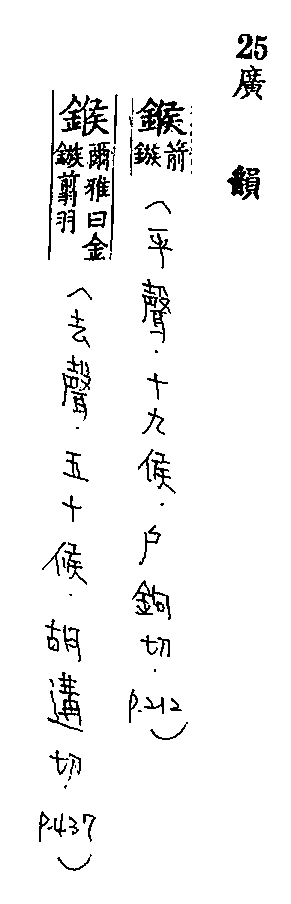 25
廣韻
鍭箭鏃(平聲．十九侯．戶鉤切．P.212)
鍭爾雅曰金鏃翦羽(去聲．五十候．胡遘切．P.437)